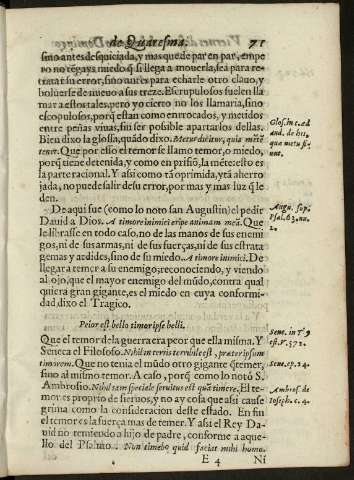 de Quaresma. 71
sino antes desquiciada, y mas que de par en par, empe
ro no tẽgays miedo q̃ si llega a mouerla, sea para re-
tratar su error, sino antes para echarle otro clauo, y
boluerse de nueuo a sus treze. Escrupulos suelen lla
mar a estos tales, pero yo cierto no los llamaria, sino
escopulosos, porq̃ estan como entrocados, y metidos
entre peñas viuas, sin ser possible apartarlos dellas.
Bien dixo la glossa, quãdo dixo. Metus dicitur, quia mẽtẽ
tenet. Que por esso el temor se llamo temor, o miedo,
porq̃ tiene detenida, y como en prisiõ, la mẽte: esto es
la parte racional. Y assi como tã oprimida, ytã aherro
jada, no puede salir de su error, por mas y mas luz q̃ le
den.
Glos. in c. ad
aud. de his,
quæ metu fi
unt.
De aqui fue (como lo noto san Augustin) el pedir
Dauid a Dios. A timore inimici eripe animam meã. Que
le librasse en todo caso, no de las manos de sus enemi
gos, ni de sus armas, ni de sus fuerças, ni de sus estrata
gemas y ardides, sino de su miedo. A timore inimici. De
llegar a temer a su enemigo; reconociendo, y viendo
al ojo, que el mayor enemigo del mũdo, contra qual
quiera gran gigante, es el miedo en cuya conformi-
dad, dixo el Tragico.
Augu. sup.
Psal. 63. nu.
2.
Peior est bello timor ipse belli.
Que el temor de la guerra era peor que ella misma. Y
Seneca el Filosofo. Nihil in terris terribile est, præter ipsum
timorem. Que no tenia el mũdo otro gigante q̃ temer,
sino al mismo temor. A caso, porq̃ como lo notò S.
Ambrosio. Nihil tam speciale seruitus est quã timere. El te-
mor es proprio de sieruos, y no ay cosa que assi cause
grima como la consideracion deste estado. En fin
el temor es la fuerça mas de temer. Y assi el Rey Da-
uid no temiendo a hijo de padre, conforme a aque-
llo del Psalmo. Non timebo quid faciat mihi homo.
Sene. ep. 24.
Ambros. de
Ioseph. c. 4.
E 4 Ni